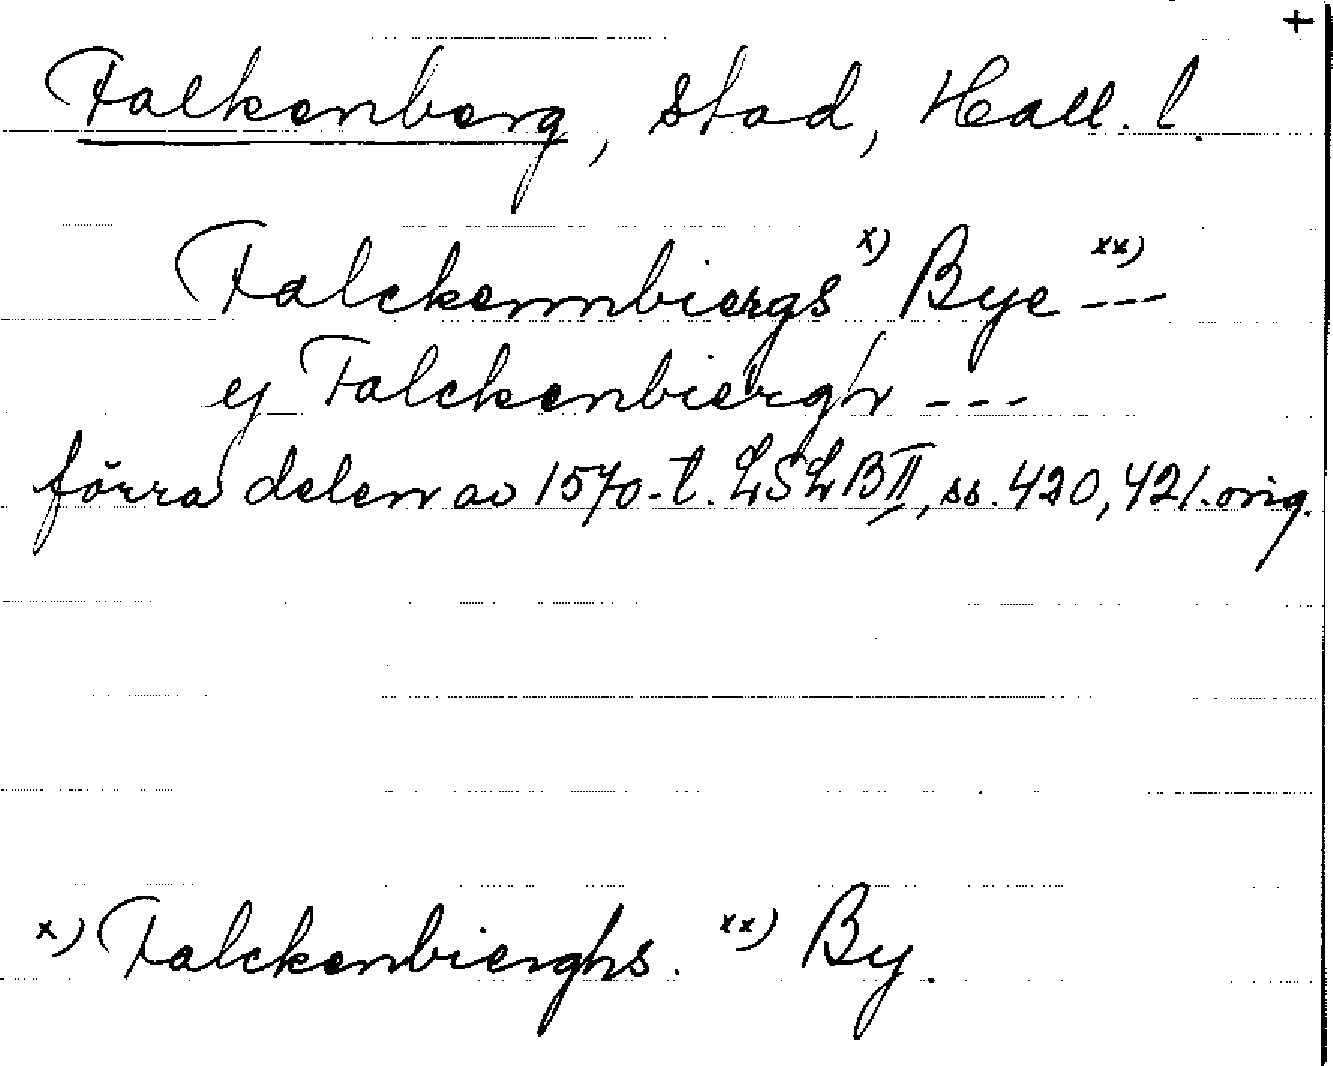 +
Falkenberg, stad, Hall. l.
Falckennbiergs x) Bye xx) ---
ej Falckenbiergh ---
förra delen av 1570-t. LSLB II, ss. 420, 421. orig.
x) Falckenbierghs. xx) By.